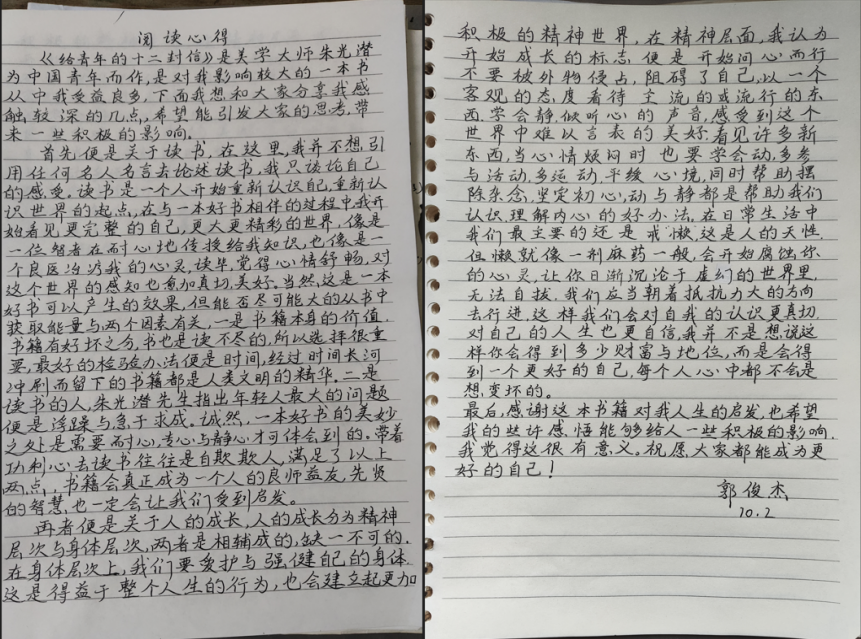 阅读心得
《给青年的十二封信》是美学大师朱光潜
为中国青年而作,是对我影响极大的一本书
从中我受益良多,下面我想和大家分享我感
触较深的几点,希望能引发大家的思考,带
来一些积极的影响。
首先便是关于读书,在这里,我并不想引
用任何名人名言去论述读书,我只谈论自己
的感受。读书是一个人开始重新认识自己,重新认
识世界的起点,在与一本好书相伴的过程中,我开
始看见更完整的自己,更大更精彩的世界,像是
一位智者在耐心地传授给我知识,也像是一
个良医治疗我的心灵,读毕,觉得心情舒畅,对
这个世界的感知也愈加真切,美好。当然,这是一本
好书可以产生的效果,但能否尽可能大的从书中
获取能量与两个因素有关,一是书籍本身的价值,
书籍有好坏之分,书也是读不尽的,所以选择很重
要,最好的检验办法便是时间,经过时间长河
冲刷而留下的书籍都是人类文明的精华。二是
读书的人,朱光潜先生指出年轻人最大的问题
便是浮躁与急于求成。诚然,一本好书的美妙
之处是需要耐心,专心与静心才可体会到的。带着
功利心去读书往往是自欺欺人,满足了以上
两点,书籍会真正成为一个人的良师益友,先贤
的智慧,也一定会让我们受到启发。
再者便是关于人的成长,人的成长分为精神
层次与身体层次,两者是相辅成的,缺一不可的。
在身体层次上,我们要爱护与强健自己的身体
这是得益于整个人生的行为,也会建立起更加
积极的精神世界,在精神层面,我认为
开始成长的标志,便是开始问心而行
不要被外物侵占,阻碍了自己,以一个
客观的态度看待主流的或流行的东
西.学会静,倾听心的声音,感受到这个
世界中难以言表的美好,看见许多新
东西,当心情烦闷时也要学会动,多参
与活动,多运动,平缓心境,同时帮助摆
除杂念,坚定初心,动与静都是帮助我们
认识,理解内心的好办法,在日常生活中
我们最主要的还是戒懒,这是人的天性.
但懒就像一剂麻药一般,会开始腐蚀你
的心灵,让你日渐沉沦于虚幻的世界里
无法自拔.我们应当朝着抵抗力大的方向
去行进,这样我们会对自我的认识更真切
对自己的人生也更自信,我并不是想说这
样你会得到多少财富与地位,而是会得
到一个更好的自己,每个人心中都不会是
想变坏的。
最后,感谢这本书籍对我人生的启发,也希望
我的些许感悟能够给人一些积极的影响.
我觉得这很有意义。祝愿大家都能成为更
好的自己!
郭俊杰
10.2